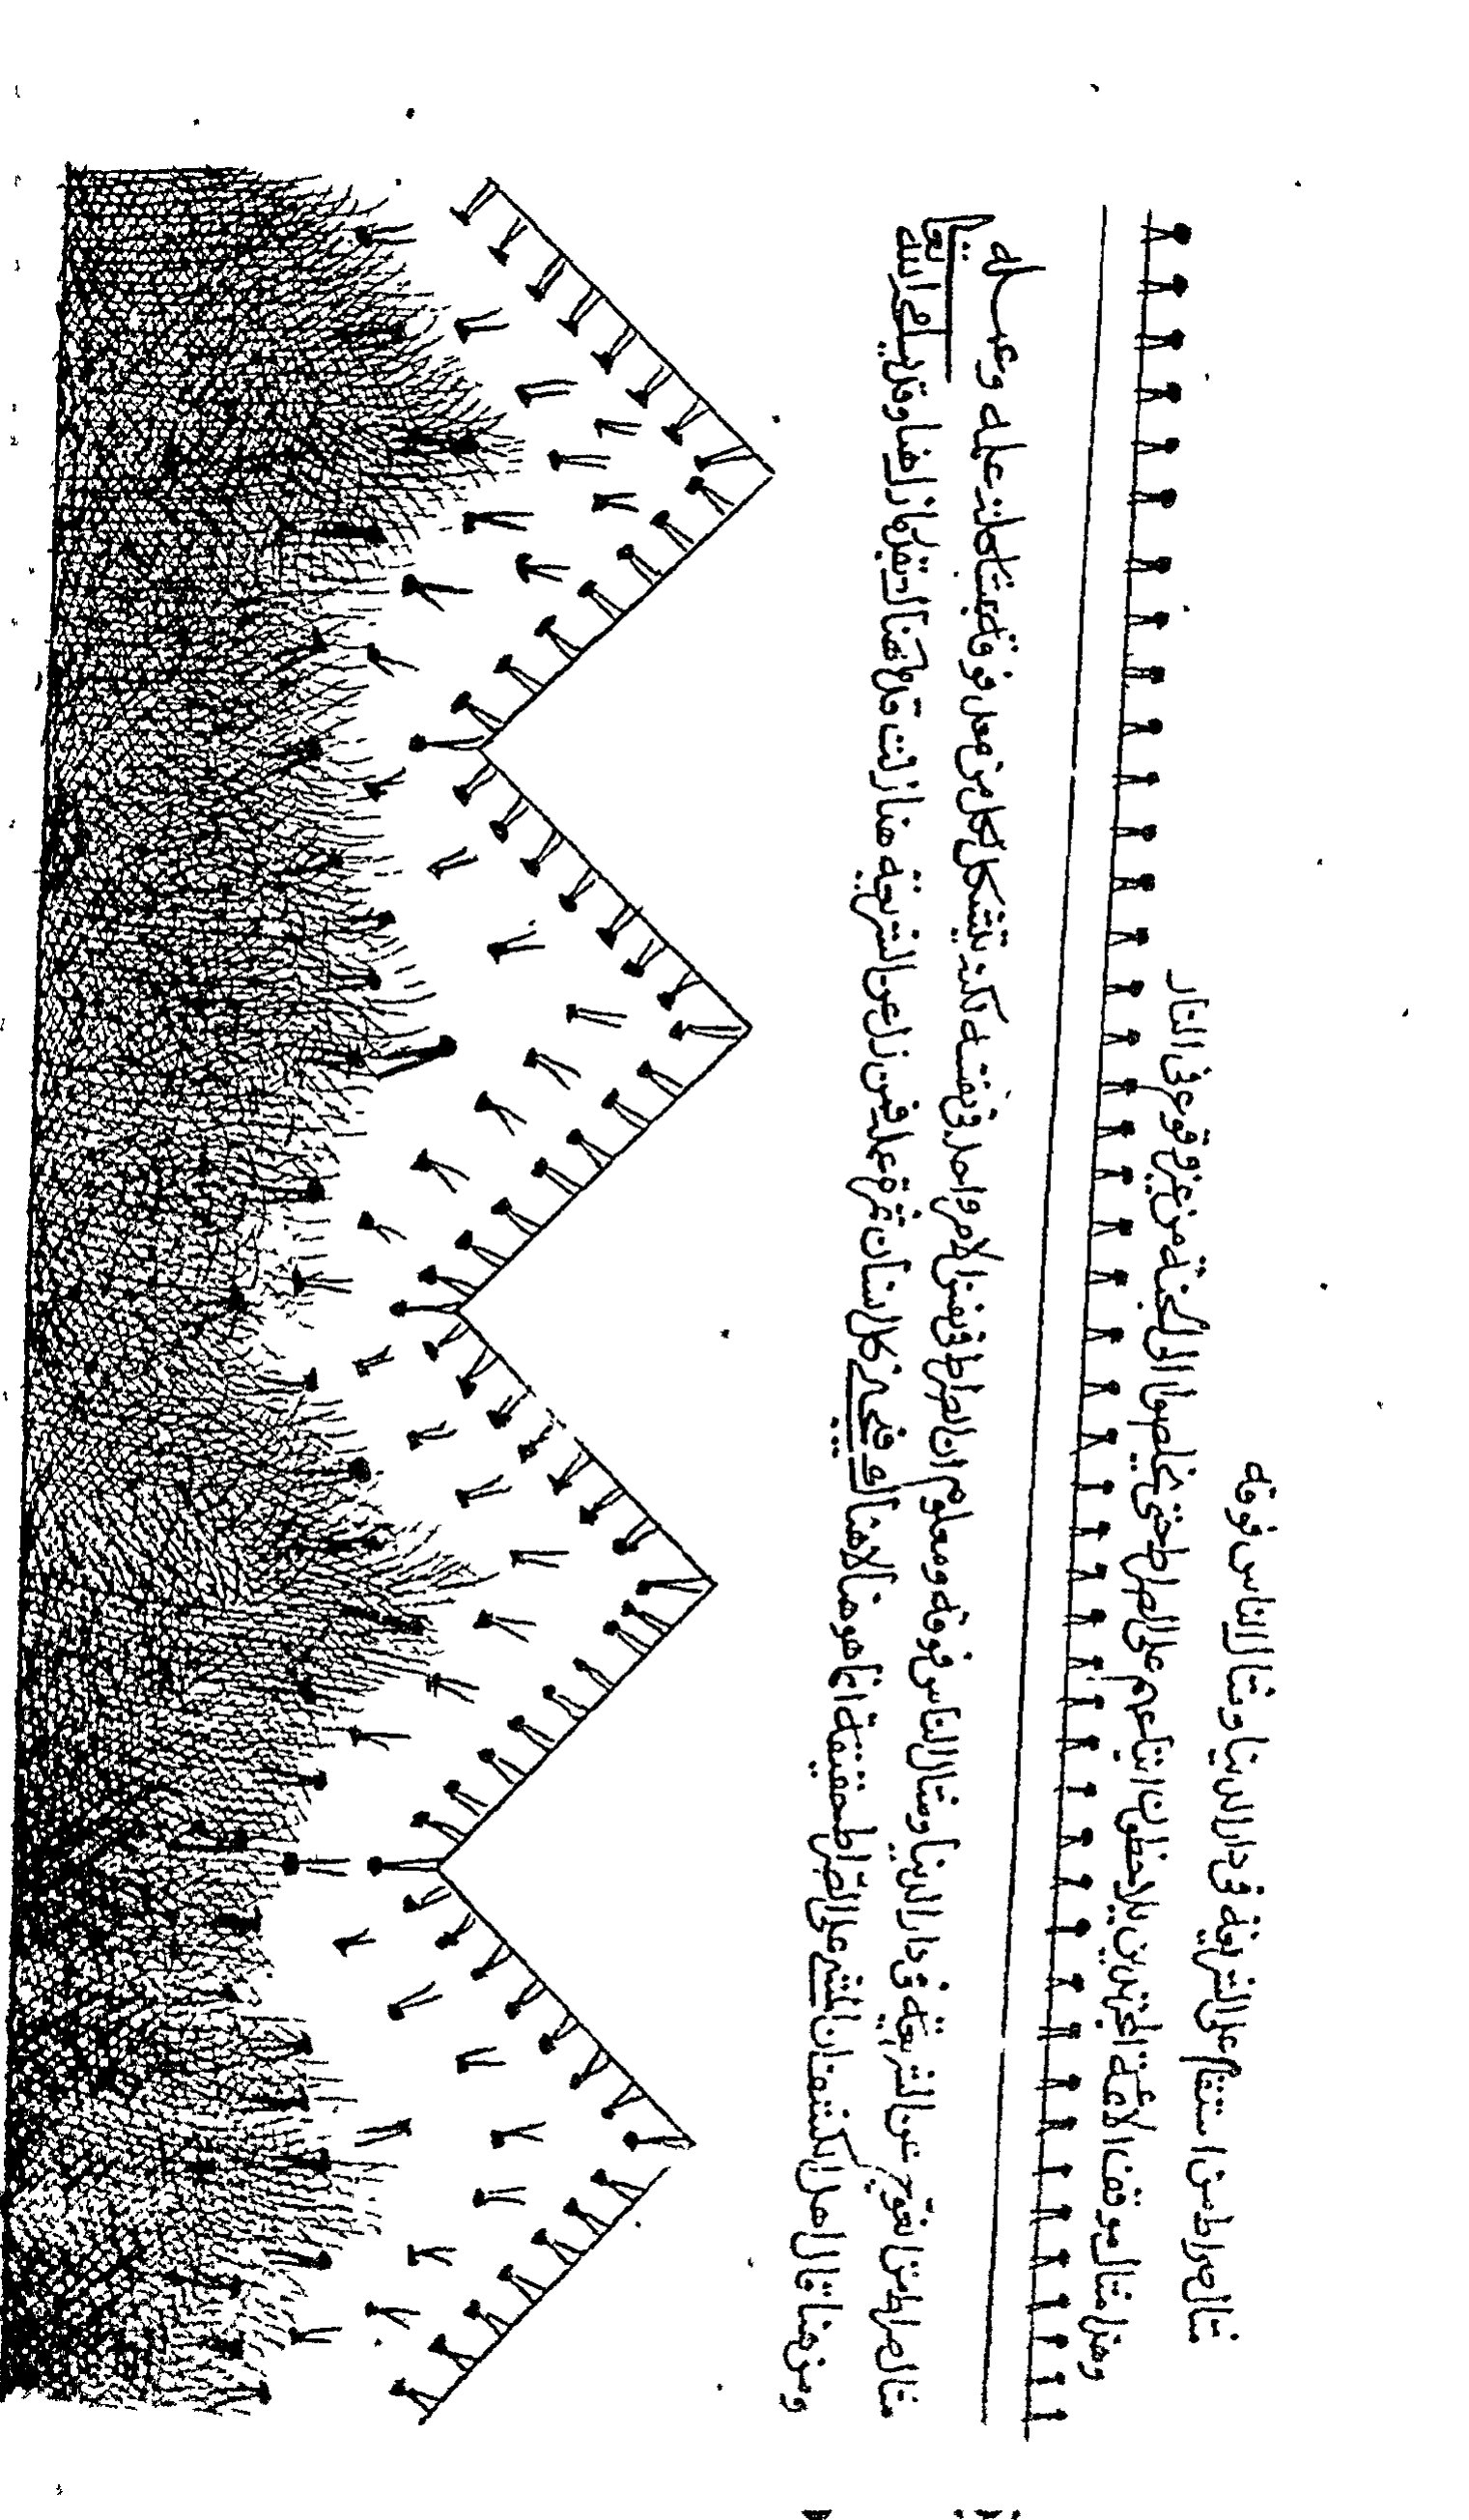 مثال صراط من استقام على الشريعة في دار الدنيا ومثال الناس فوقه
وهذا مثال موقف الائمة المجتهدين يلاحظون اتباعهم على الصراط حتى يخلصوا الى الجنة من غير وقوع في النار
مثال صراط من اعوج عن الشريعة في دار الدنيا ومثال الناس فوقه ومعلوم ان الصراط في نفس الامر واحد في نفسه لكنه يتشكل لكل من فوقه عليه وعمله
ومن هنا قال اهل الكشف ان المشي على الصراط حقيقة انما هو هنا لا هناك كل انسان عليه فمن زل عن الشريعة هنا زلت هناك بقدر ما زل هنا وقد يسامح الله تعالى